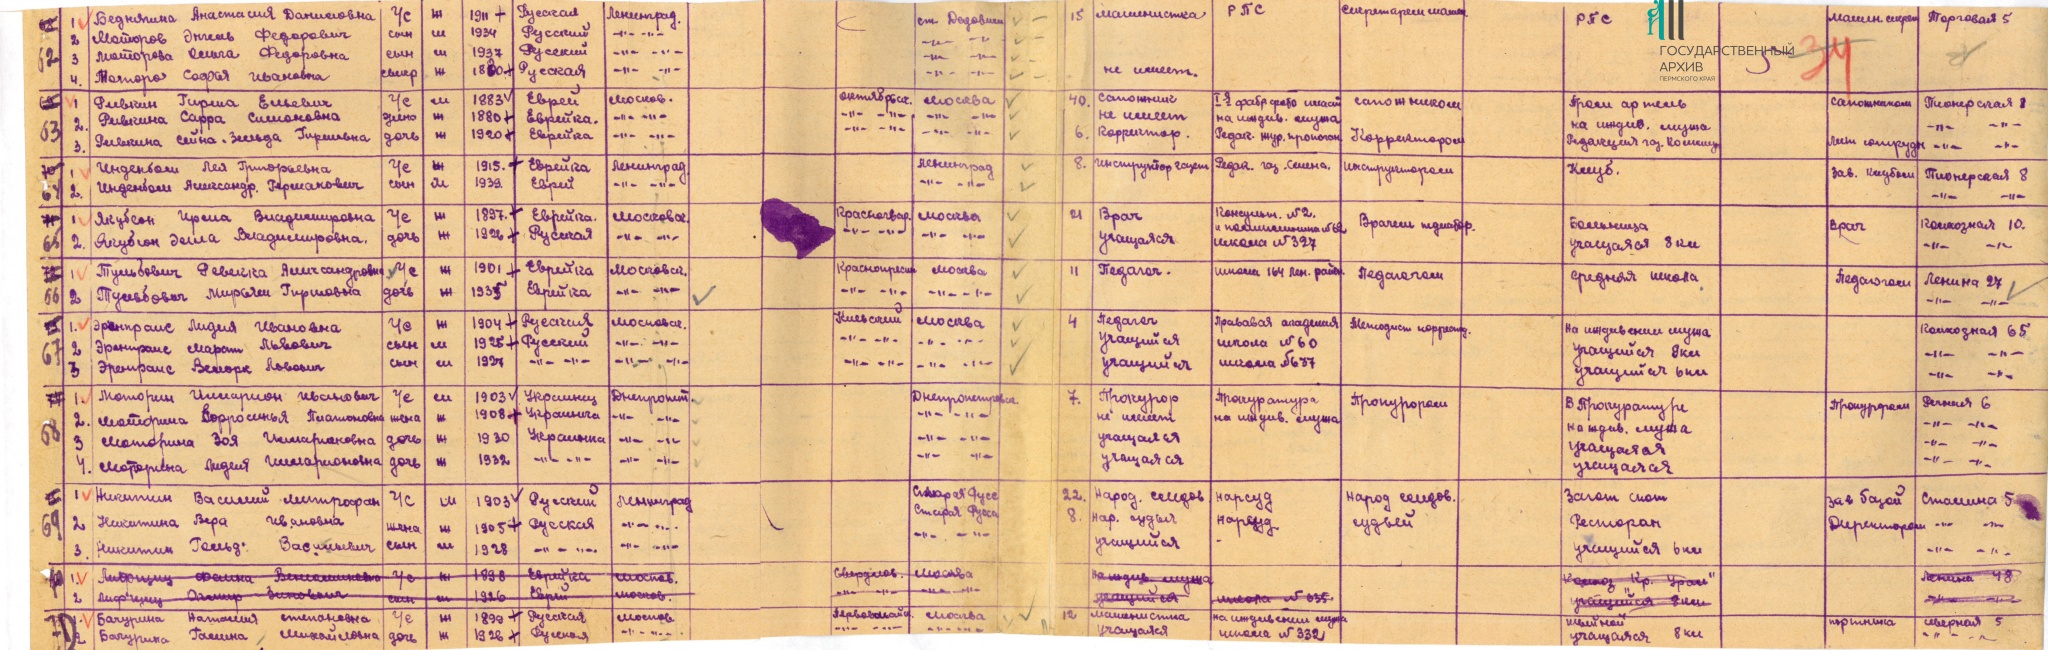 1 Беднягина Анастасия Даниловна Ч/с ж 1911 Русская Ленинград. ст. Дедовичи 15 машинистка РПС секретарем машин. РПС машин. секрет Торговая 5
2 Моторов Энгель Федорович сын м 1934 Русский -"- -"- -"- -"-
3 Моторова Ольга Федоровна сын м 1937 Русский -"- -"- -"- -"-
62 4. Софья Ивановна ж Русская -"- -"- -"- -"- не имеет.
1 Ривкин Гирша Ельевич Ч/с м 1883 Еврей Москов. октябрьск. Москва 40. сапожник сапожником Пром артель сапожником Пионерская 8
2. Ривкина Сарра Симоновна жена ж 1880 Еврейка. -"- -"- -"- -"- не имеет на иждив. мужа на иждив. мужа -"- -"-
63 3. Ривкина Гиршевна дочь ж 1920 Еврейка -"- -"- -"- -"- -"- -"- 6. Корректор. Редак. жур. Корректором Редакция газ. Лит сотрудн -"- -"-
1 Инденбом Лея Григорьевна Ч/с ж 1915. Еврейка Ленинград. Ленинград 8. инструктор газет Редак. газ. Смена. инструктором Клуб. зав. клубом Пионерская 8
2. Инденбом Александр. Германович сын м 1939 Еврей -"- -"- -"- -"- -"- -"-
1 Якубсон Ирма Владимировна Ч/с ж 1897. Еврейка. Московск. Красногвар. Москва 21 Врач Консульт. №2. Врачем педиатор. Больница врач Колхозная 10.
65 2. Якубсон Элла Владимировна. дочь ж 1926 Русская -"- -"- -"- -"- -"- -"- учащаяся школа №327 учащаяся 8 кл -"- -"-
1 Тульбович Ревекка Александровна Ч/с ж 1901 Еврейка Московск. Краснопресн Москва 11 Педагог. школа 164 Лен. район. Педагогом средняя школа Педагогом Ленина 27
66 2 Тульбович Мирьям Гиршовна дочь ж 1935 Еврейка -"- -"- -"- -"- -"- -"- -"- -"-
1. Эренпрайс Лидия Ивановна Ч/с ж 1904 Русская Московск. Киевский Москва 4 Педагог Правовая академия Методист корреспд. на иждивении мужа Колхозная 65
67 2 Эренпрайс Марат Львович сын м 1925 Русский -"- -"- -"- -"- -"- -"- учащийся школа №60 учащийся 8 кл -"- -"-
3 Эренпрайс Львович сын м 1927 -"- -"- -"- -"- -"- -"- -"- -"- учащийся школа №637 учащийся 6 кл -"- -"-
1 Моторин Илларион Иванович Ч/с м 1903 Украинец Днепропет. Днепропетровск 7. Прокурор Прокуратура Прокурором В Прокуратуре Прокурором Речная 6
68 2. Моторина Платоновна жена ж 1908 Украинка -"- -"- -"- -"- не имеет на иждив. мужа на иждив. мужа -"- -"-
3 Моторина Зоя Илларионовна дочь ж 1930 Украинка -"- -"- -"- -"- учащаяся учащаяся -"- -"-
4. Моторина Лидия Илларионовна дочь ж 1932 -"- -"- -"- -"- -"- -"- учащаяся учащаяся -"- -"-
1 Никитин Василий Митрофан Ч/с м 1903 Русский Ленинград Старая Русс 22. Народ. следов нарсуд народ следов. Загот скот Зав базой Сталина 5
69 2 Никитина Вера Ивановна жена ж 1905 Русская -"- -"- Старая Русса 8. нар. судья нарсуд судьей Ресторан Директором -"- -"-
3. Никитин Василевич сын м 1928 -"- -"- -"- -"- -"- -"- учащийся - учащийся 6 кл -"- -"-
1. Лифшиц Вениаминовна Ч/с ж 1898 Еврейка москов. Свердлов. Москва на иждив. мужа Колхоз "Кр. Урал" Ленина 48
2 Лифшиц Зиновьич сын м 1926 Еврей москов. -"- -"- -"- -"- учащийся школа №635 учащийся 8 кл -"- -"-
1. Бачурина Наталия Степановна Ч/с ж 1899 Русская москов Первомайск. Москва 12 машинистка на иждивении мужа швейной портниха Северная 5
2 Бачурина Галина Михайловна дочь ж 1926 Русская -"- -"- -"- -"- -"- -"- учащаяся школа №332 учащаяся 8 кл -"- -"-
34
ГОСУДАРСТВЕННЫЙ
АРХИВ
ПЕРМСКОГО КРАЯ